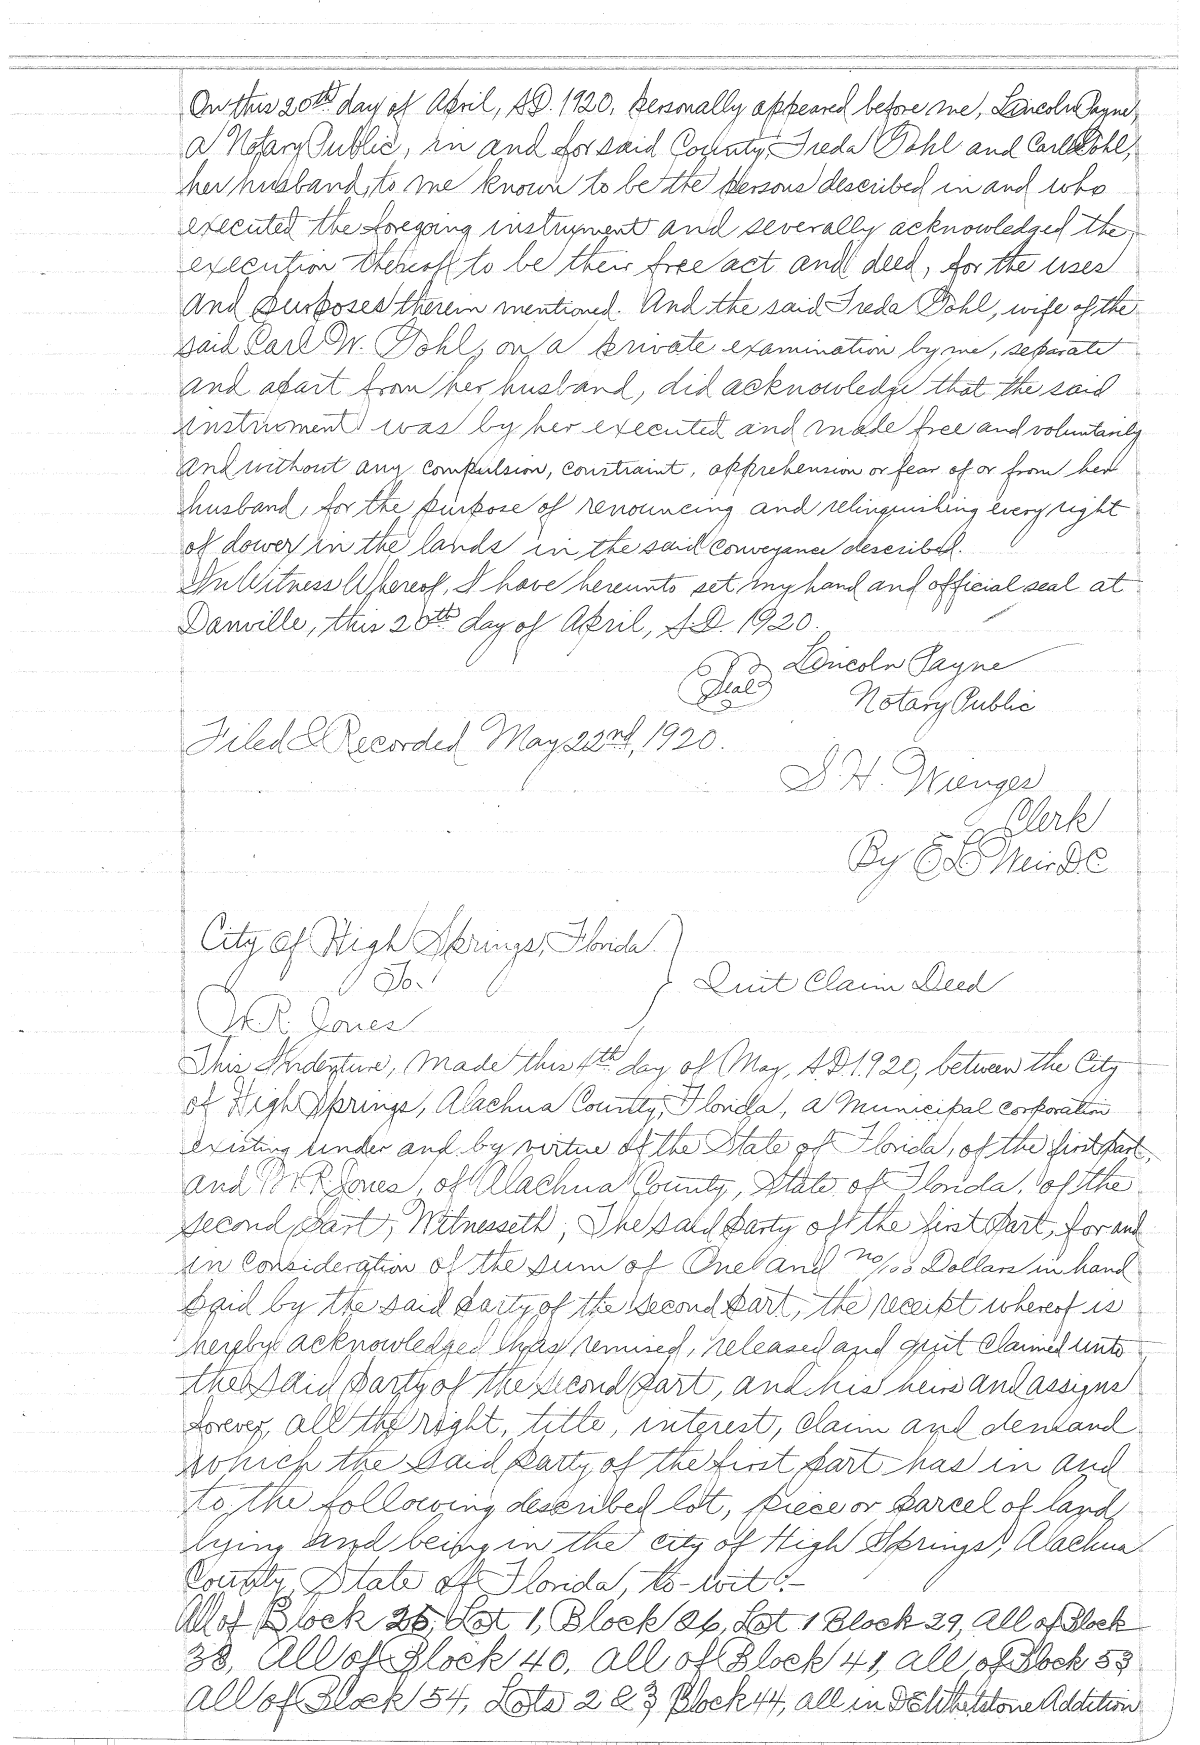 On this 20th day of April, A.D. 1920, personally appeared before me, Lincoln Payne,
a Notary Public, in and for said County, Freda Pohl and Carl Pohl,
her husband, to me known to be the persons described in and who
executed the foregoing instrument and severally acknowledged the
execution thereof to be their free act and deed, for the uses
and purposes therein mentioned. And the said Freda Pohl, wife of the
said Carl W. Pohl, on a private examination by me, separate
and apart from her husband, did acknowledge that the said
instrument was by her executed and made free and voluntarily
and without any compulsion, constraint, apprehension or fear of or from her
husband, for the purpose of renouncing and relinquishing every right
of dower in the lands in the said conveyance described.
In Witness Whereof, I have hereunto set my hand and official seal at
Danville, this 20th day of April, A.D. 1920.
Lincoln Payne
(Seal) Notary Public
Filed & Recorded May 22nd, 1920.
S. H. Wienges
Clerk
By E L Weir D.C
City of High Springs, Florida.
To. Quit Claim Deed
W. R. Jones
This Indenture, made this 4th day of May, A.D. 1920, between the City
of High Springs, Alachua County, Florida, a municipal corporation
existing under and by virtue of the State of Florida, of the first part,
and W R Jones, of Alachua County, State of Florida, of the
second part, Witnesseth; The said party of the first part, for and
in consideration of the sum of One and no/00 Dollars in hand
paid by the said party of the second part, the receipt whereof is
hereby acknowledged has remised, released and quit claimed unto
the said party of the second part, and his heirs and assigns
forever, all the right, title, interest, claim and demand
which the said party of the first part has in and
to the following described lot, piece or parcel of land,
lying and being in the city of High Springs, Alachua
County, State of Florida, to-wit:-
All of Block 25, Lot 1, Block 26, Lot 1 Block 29, All of Block
38, All of Block 40, All of Block 41, all of Block 53
All of Block 54, Lots 2 & 3 Block 44, all in Addition